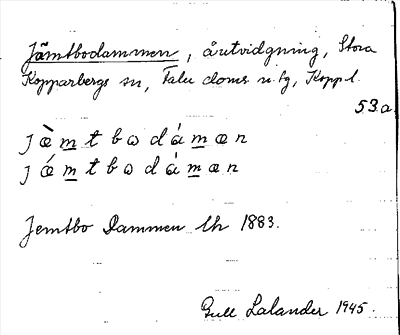 Jämtbodammen, årutvidgning, Stora
Kopparbergs sn, Falu doms. n. tg, Kopp l.
53.a.
jæ̀mtbωdámæn
jǽmtbωdàmæn
Jemtbo Dammen Ch 1883.
Gull Lalander 1945.